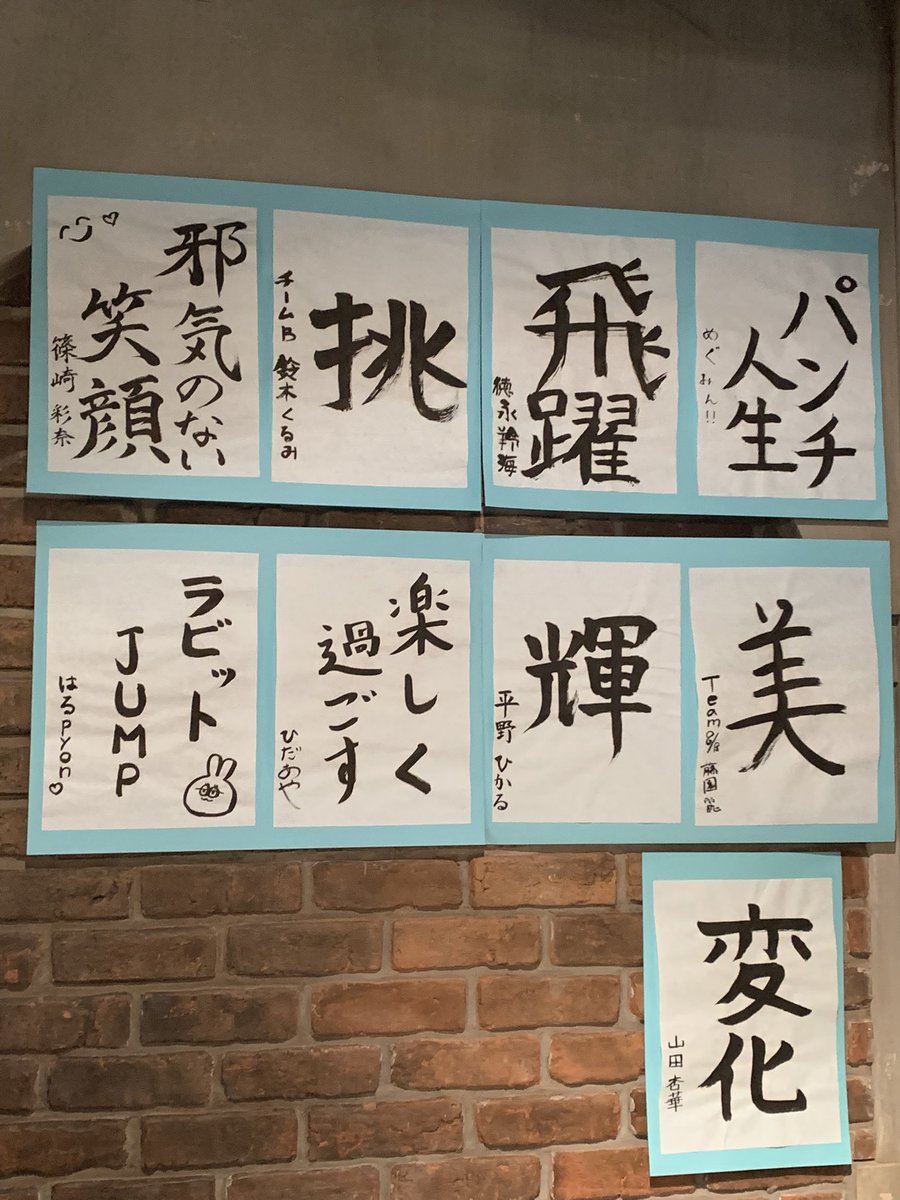 パンチ
人生
めぐみん!!
飛躍
徳永羚海
挑
チームB 鈴木くるみ
邪気のない
笑顔
篠崎 彩奈
美
輝
平野 ひかる
楽しく
過ごす
ひだあや
ラビット
JUMP
はるpyon♡
変化
山田 杏華